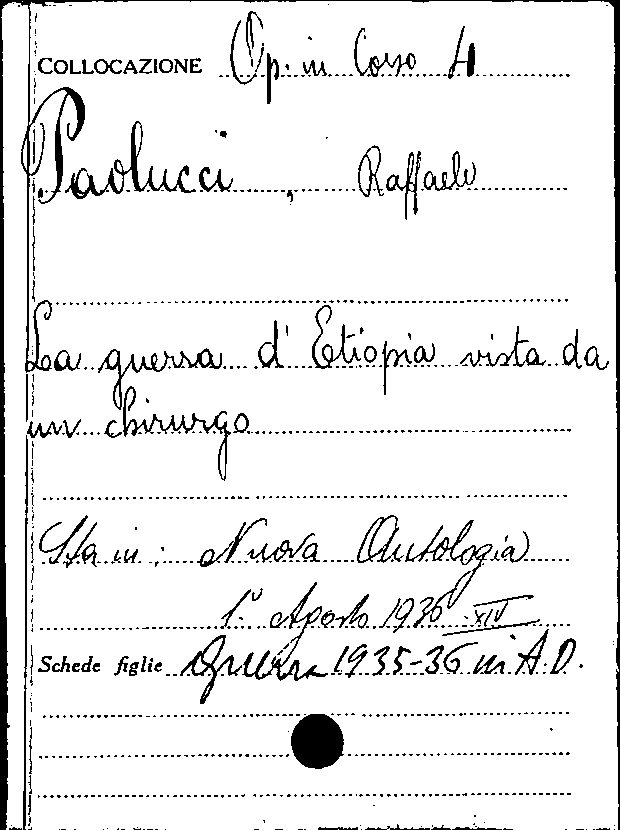 COLLOCAZIONE Op. in Corso 4
Paolucci, Raffaele
La guerra d'Etiopia vista da
un chirurgo
Sta in: Nuova Antologia
1° Agosto 1936 XIV
Schede figlie Guerra 1935-36 in A.O.